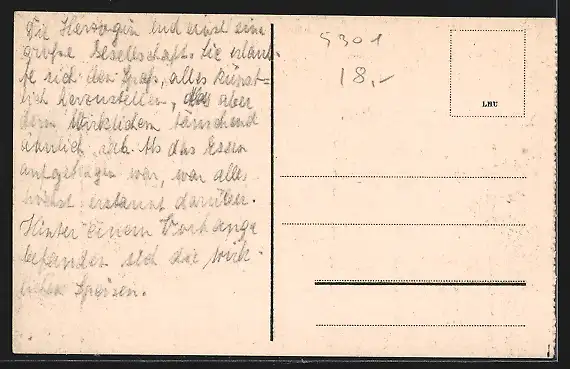 Die Herzogin lud einst eine
große Gesellschaft. Sie erlaub-
te sich den Spaß, alles künst-
lich herzustellen, das aber
dem Wirklichem täuschend
ähnlich sah. Als das Essen
aufgetragen war, war alles
höchst erstaunt darüber.
Hinter einem Vorhange
befanden sich die wirk-
lichen Speisen.
5301
18,-
LHU